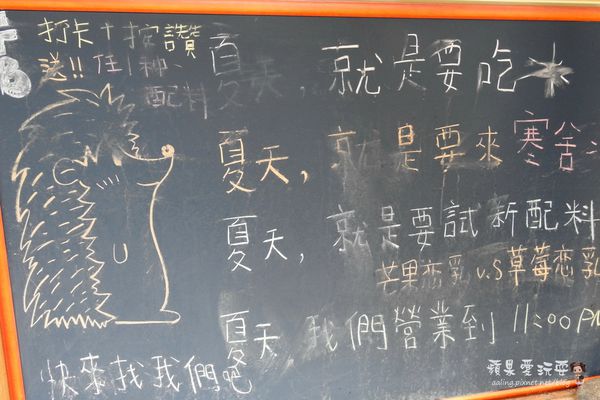 打卡+按讚
送!!任1種、
配料
夏天,就是要吃冰
夏天,就是要來寒舍
夏天,就是要試新配料
芒果恋乳 v.s草莓恋乳
夏天 我們營業到 11:00PM
快來找我們吧
蘋果愛玩耍
aaling.pixnet.net/blog